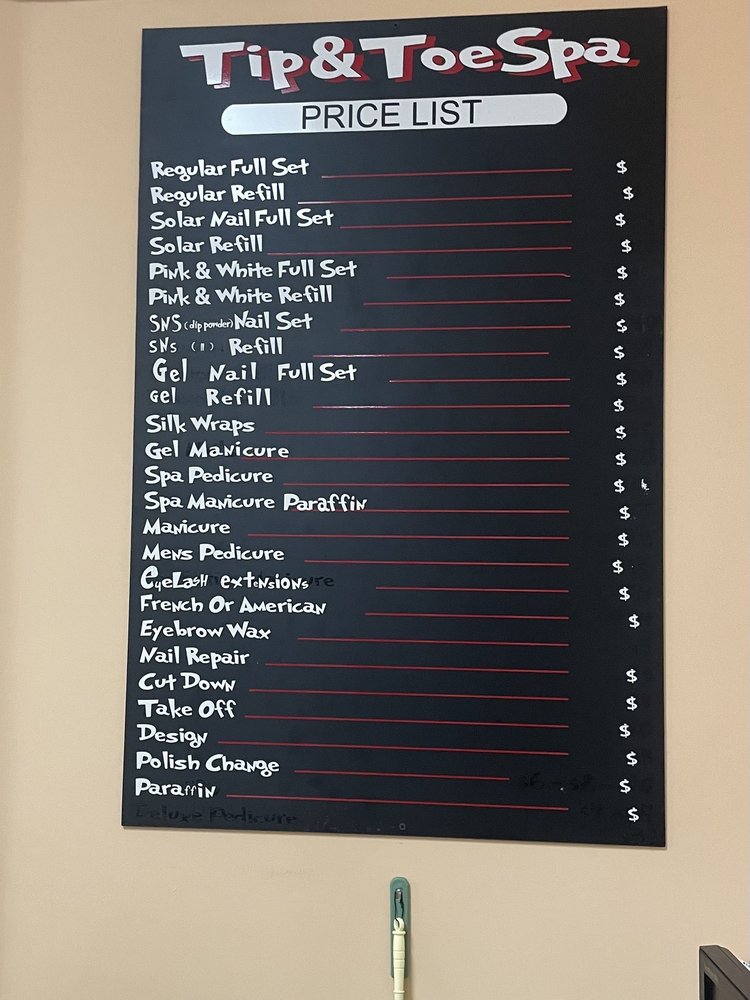 Tip & Toe Spa
PRICE LIST
Regular Full Set $
Regular Refill $
Solar Nail Full Set $
Solar Refill $
Pink & White Full Set $
Pink & White Refill $
SNS (dip ponder) Nail Set $
SNS (11) Refill $
Gel Nail Full Set $
Gel Refill $
Silk Wraps $
Gel Manicure $
Spa Pedicure $
Spa Manicure Paraffin $
Manicure $
Mens Pedicure $
EyeLASH extensions $
French Or American $
Eyebrow Wax
Nail Repair $
Cut Down $
Take Off $
Design $
Polish Change $
Paraffin $
Deluxe Pedicure